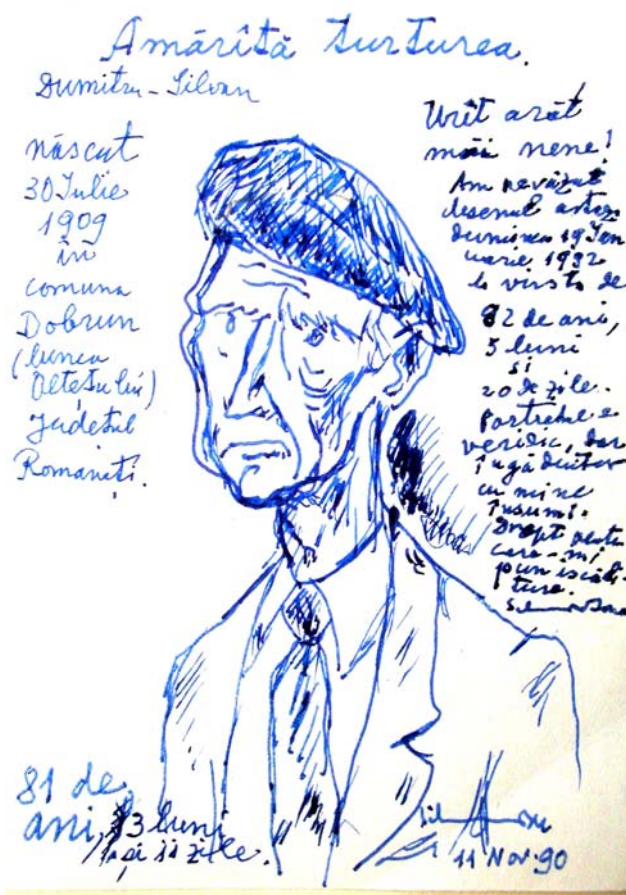 Amărîtă turturea.
Dumitru-Silvan
născut
30 Iulie
1909
în
comuna
Dobrun
(lunca
Oltețului)
Județul
Romanați.
Urît arăt
măi nene!
Am revăzut
desenul astăzi
duminica 19 Ian
uarie 1992
la vîrsta de
82 de ani,
5 luni
și
20 de zile.
Portretul e
veridic, dar
îngăduitor
cu mine
însumi.
Drept pentru
care-mi
pun iscăli-
tura.
81 de
ani, 3 luni
și 11 zile.
11 Nov. 90